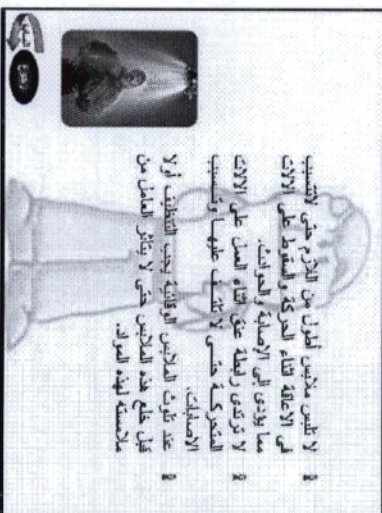 لا تلبس ملابس أطول من اللازم حتى لا تتسبب
في الاعاقة اثناء الحركة والسقوط على الالات
مما يؤدى إلى الإصابة والحوادث.
لا ترتدى رابطة عنق اثناء العمل على الالات
المتحركة حتى لا تلتف عليها وتسبب
الاصابات.
عند تلوث الملابس الوقائية يجب التنظيف أولا
قبل خلع هذه الملابس حتى لا يتأثر العامل من
ملامسته لهذه المواد.